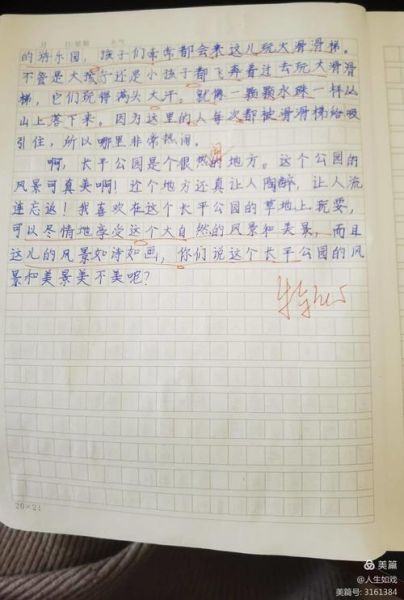 的游乐园，孩子们常常都会来这儿玩大滑滑梯。
不管是大孩子还是小孩子都飞奔着过去玩大滑滑
梯，它们玩得满头大汗。就像一颗颗水珠一样从
山上落下来。因为这里的人每次都被滑滑梯给吸
引住，所以哪里非常热闹。
啊，长平公园是个很然的地方。这个公园的
风景可真美啊！这个地方还真让人陶醉，让人流
连忘返！我喜欢在这个长平公园的草地上玩耍，
可以尽情地享受这个大自然的风景和美景，而且
这儿的风景如诗如画，你们说这个长平公园的风
景和美景美不美呢？
20×21
美篇
@人生如戏
美篇号：3161384